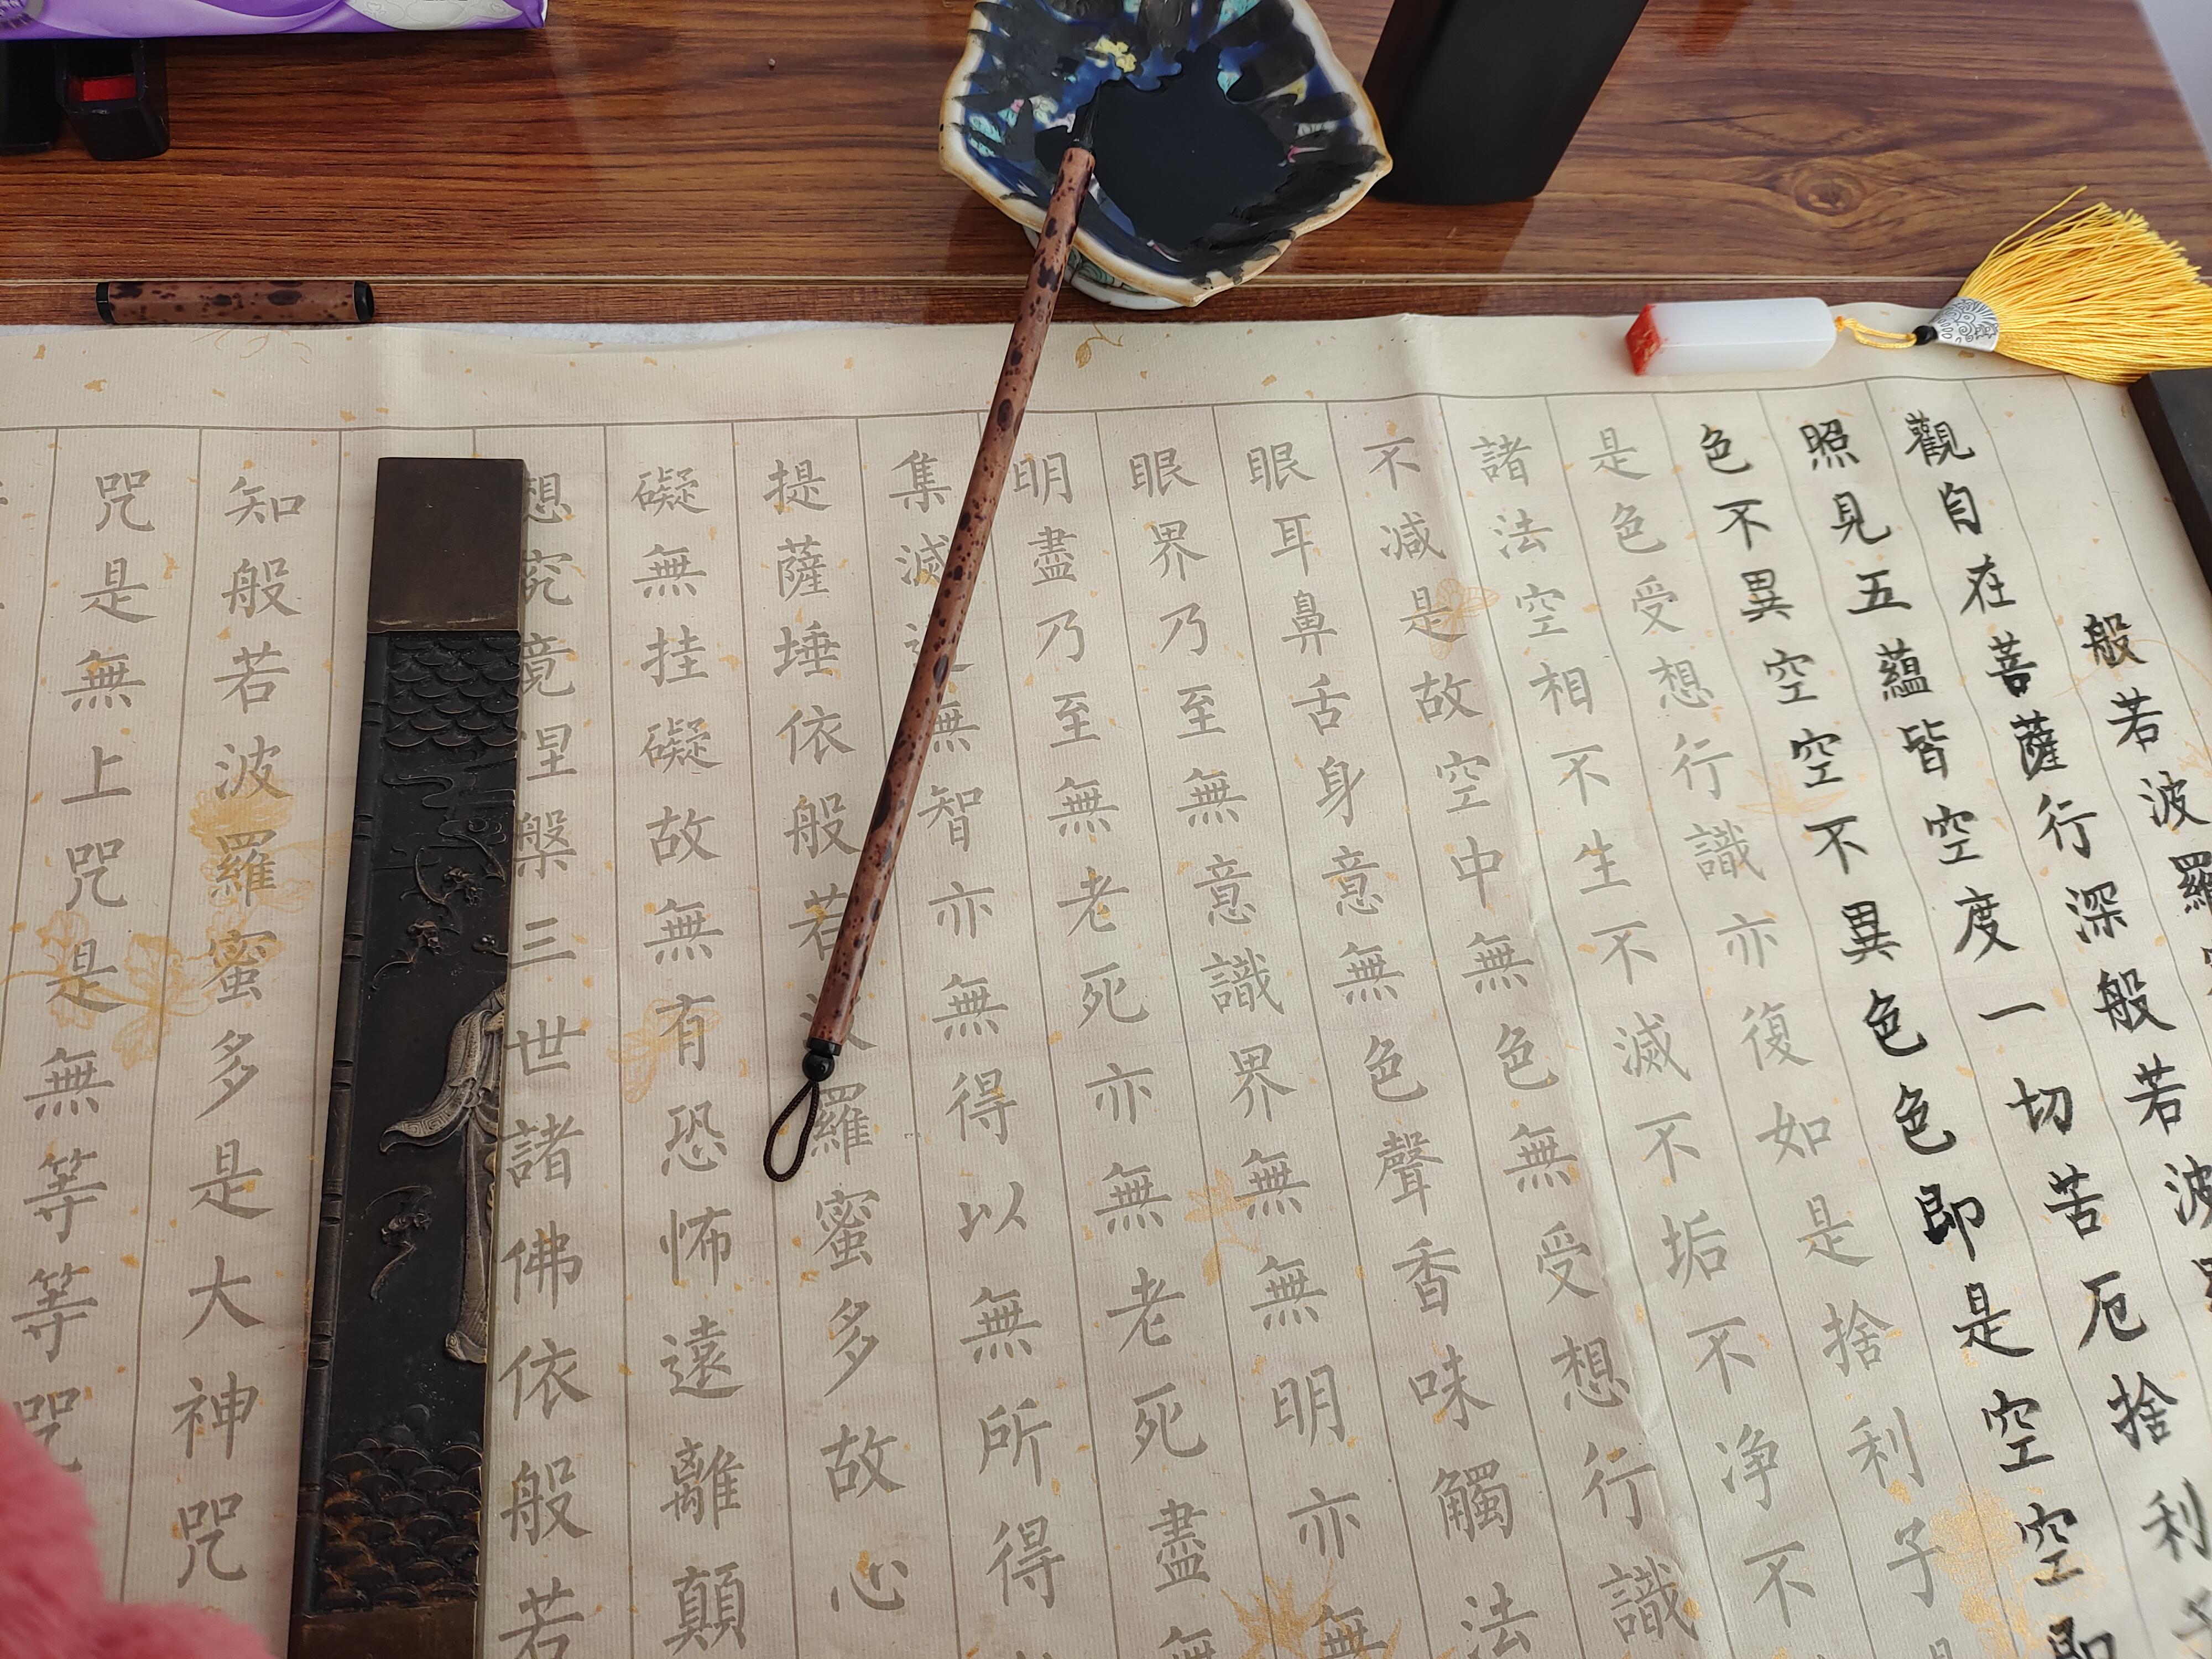 般若波羅
觀自在菩薩行深般若波
照見五蘊皆空度一切苦厄捨利子
色不異空空不異色色即是空空即
是色受想行識亦復如是捨利子是
諸法空相不生不滅不垢不净不
不减是故空中無色無受想行識
眼耳鼻舌身意無色聲香味觸法
眼界乃至無意識界無無明亦無
明盡乃至無老死亦無老死盡無
集滅道無智亦無得以無所得
提薩埵依般若波羅蜜多故心
礙無挂礙故無有恐怖遠離顛
想究竟涅槃三世諸佛依般若
知般若波羅蜜多是大神咒
咒是無上咒是無等等咒